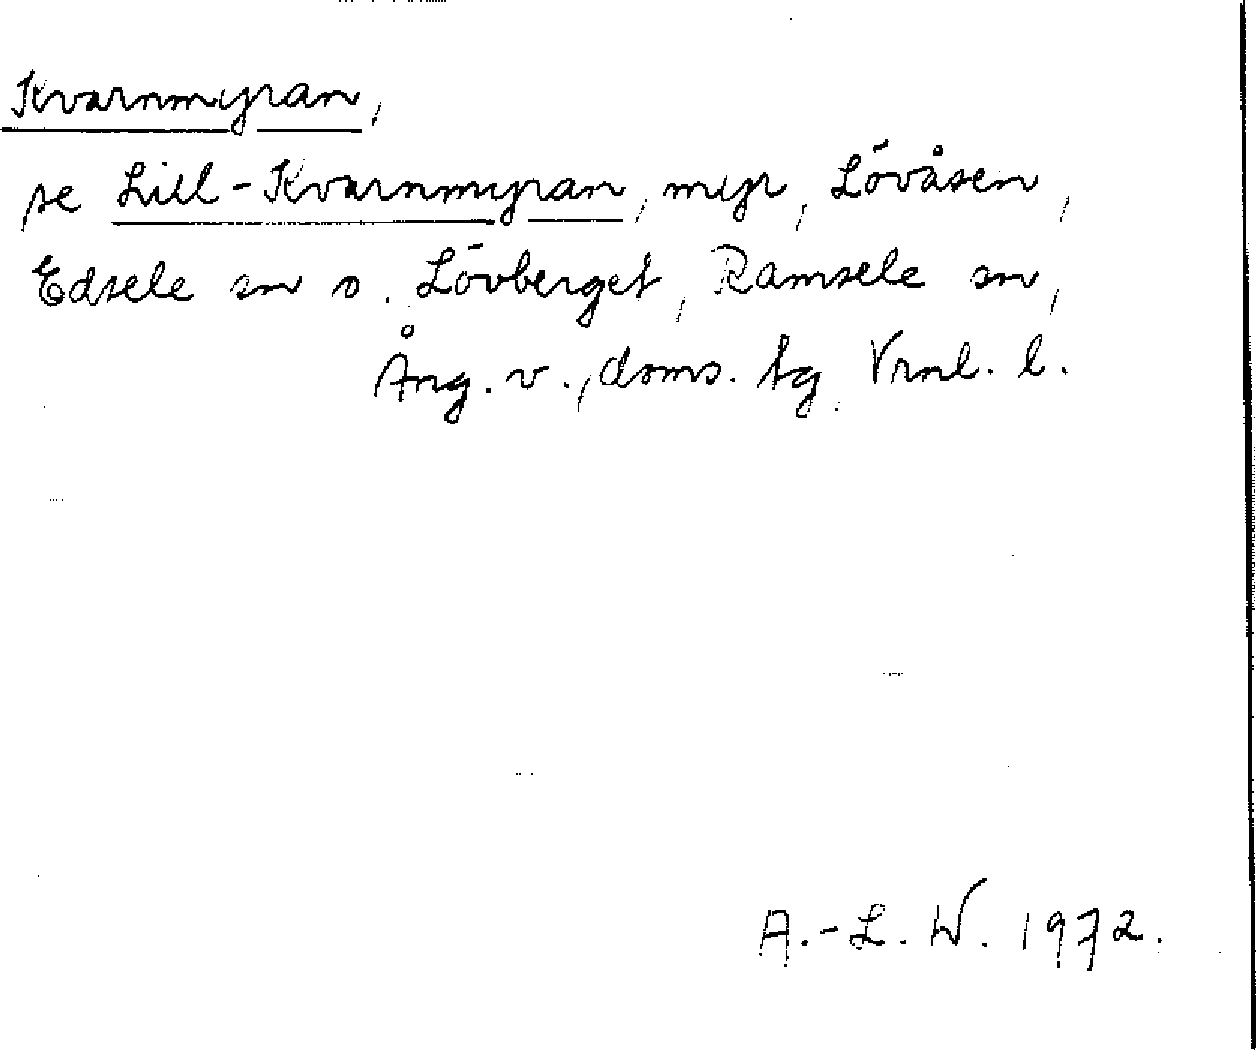 Kvarnmyran,
se Lill-Kvarnmyran, myr, Lövåsen,
Edsele sn o. Lövberget, Ramsele sn,
Ång. v., doms. tg Vrnl. l.
A.-L. W. 1972.